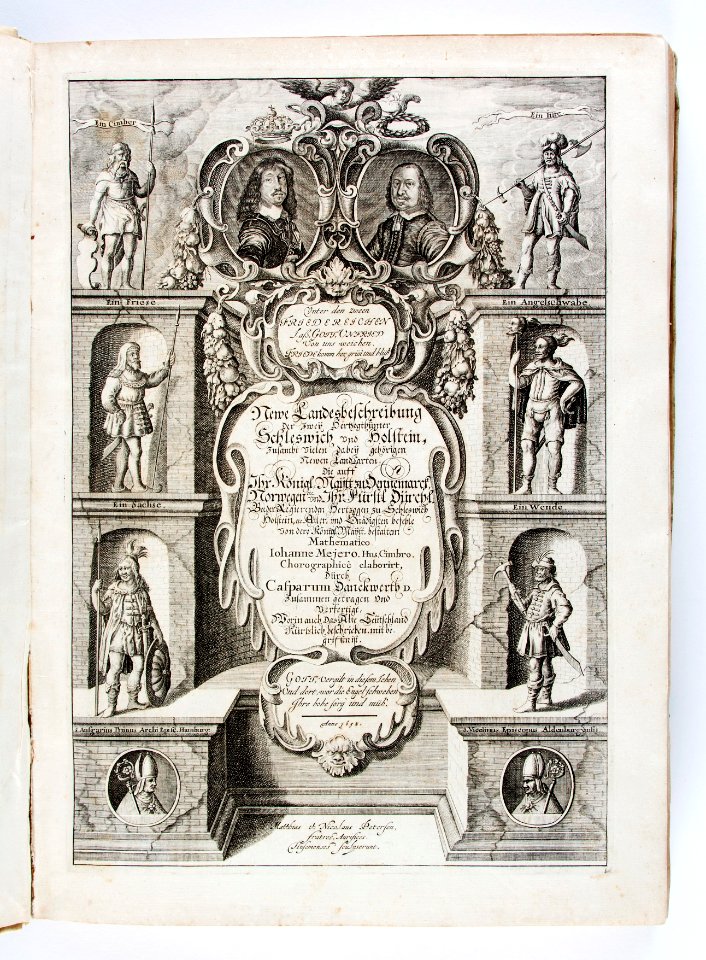 Ein Cimber
Ein Jüte
Ein Friese
Ein Angelschwabe
Ein Sachse
Ein Wende
Unter den zween
FRIEDEREICHEN
Laß GOTT UNFRIED
Von uns weichen.
FRIED komm her, grün und blüh
Newe Landesbeschreibung
Der Zweÿ Hertzogthümer
Schleswich und Holstein,
Zusambt Vielen dabeÿ gehörigen
Newen LandCarten
Die auff
Ihr. Königl. Maÿtt. zu Dennemarck,
Norwegen und Ihr. Fürstl. Dürchl.
Beÿder Regierenden Hertzogen zu Schleswich
Holstein, Aller und Gnädigsten befehle
Von dero Königl. Maÿtt. bestalten
Mathematico
Iohanne Mejero, Hus. Cimbro.
Chorographicè elaborirt,
Durch
Casparum Danckwerth D.
Zusammen getragen Und
Verfertigt,
Worin auch Das Alte Teütschland
Kürtzlich beschrieben, mit be-
griffen ist.
GOTT vergilt in diesem Leben
Und dort, wor die Engel schweben
Ihre hohe sorg und müh.
Anno 1652.
S. Ansgarius Primus Archi Episc. Hamburg.
S. Vicelinus Episcopus Aldenburgensis
Matthias & Nicolaus Petersen,
fratres, Aurifices
Husumenses sculpserunt.